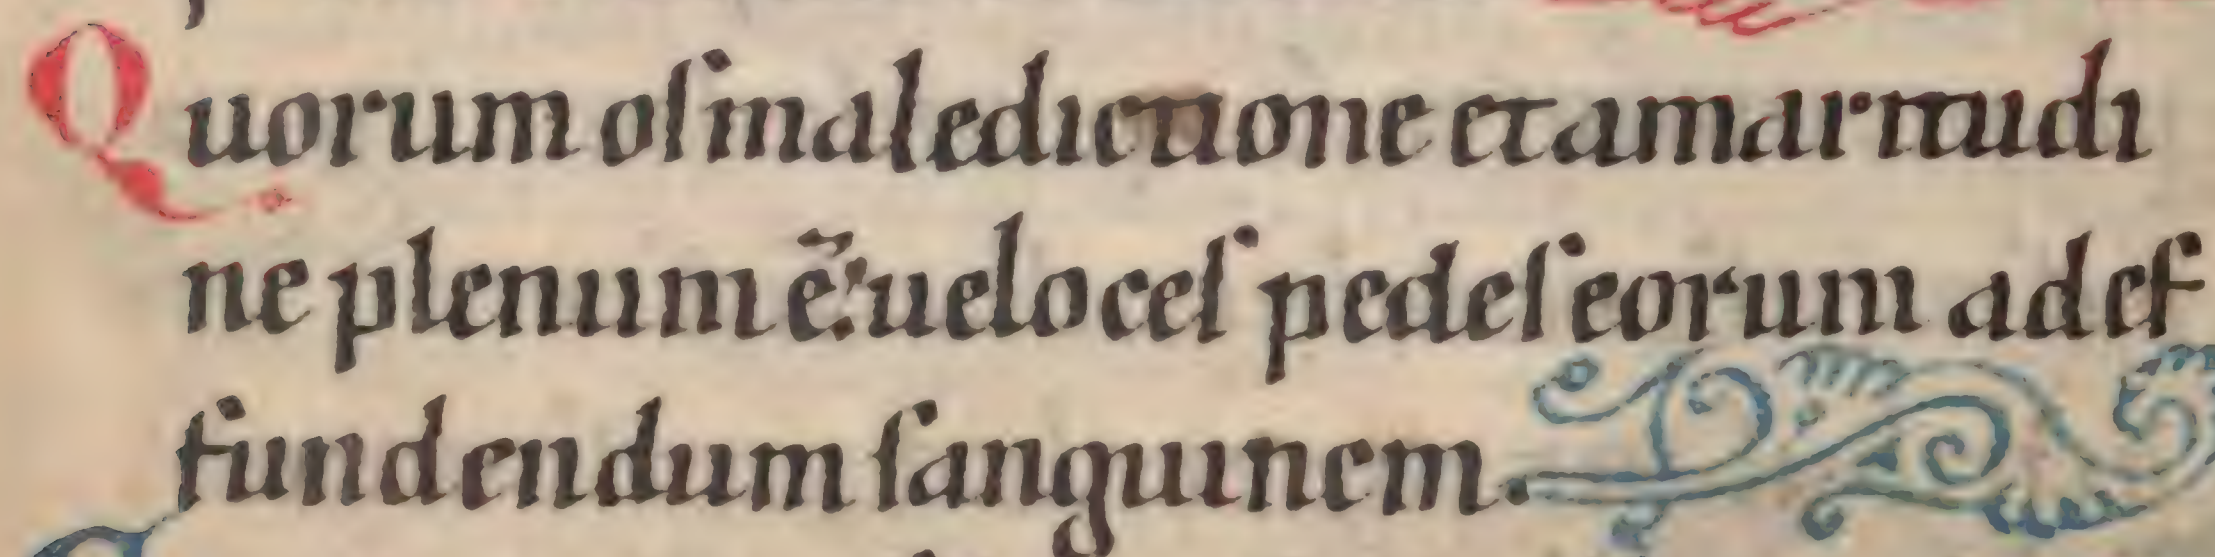 Quorum oſ maledictione et amaritudi
ne plenum ē: ueloceſ pedeſ eorum ad ef
fundendum ſanguinem.